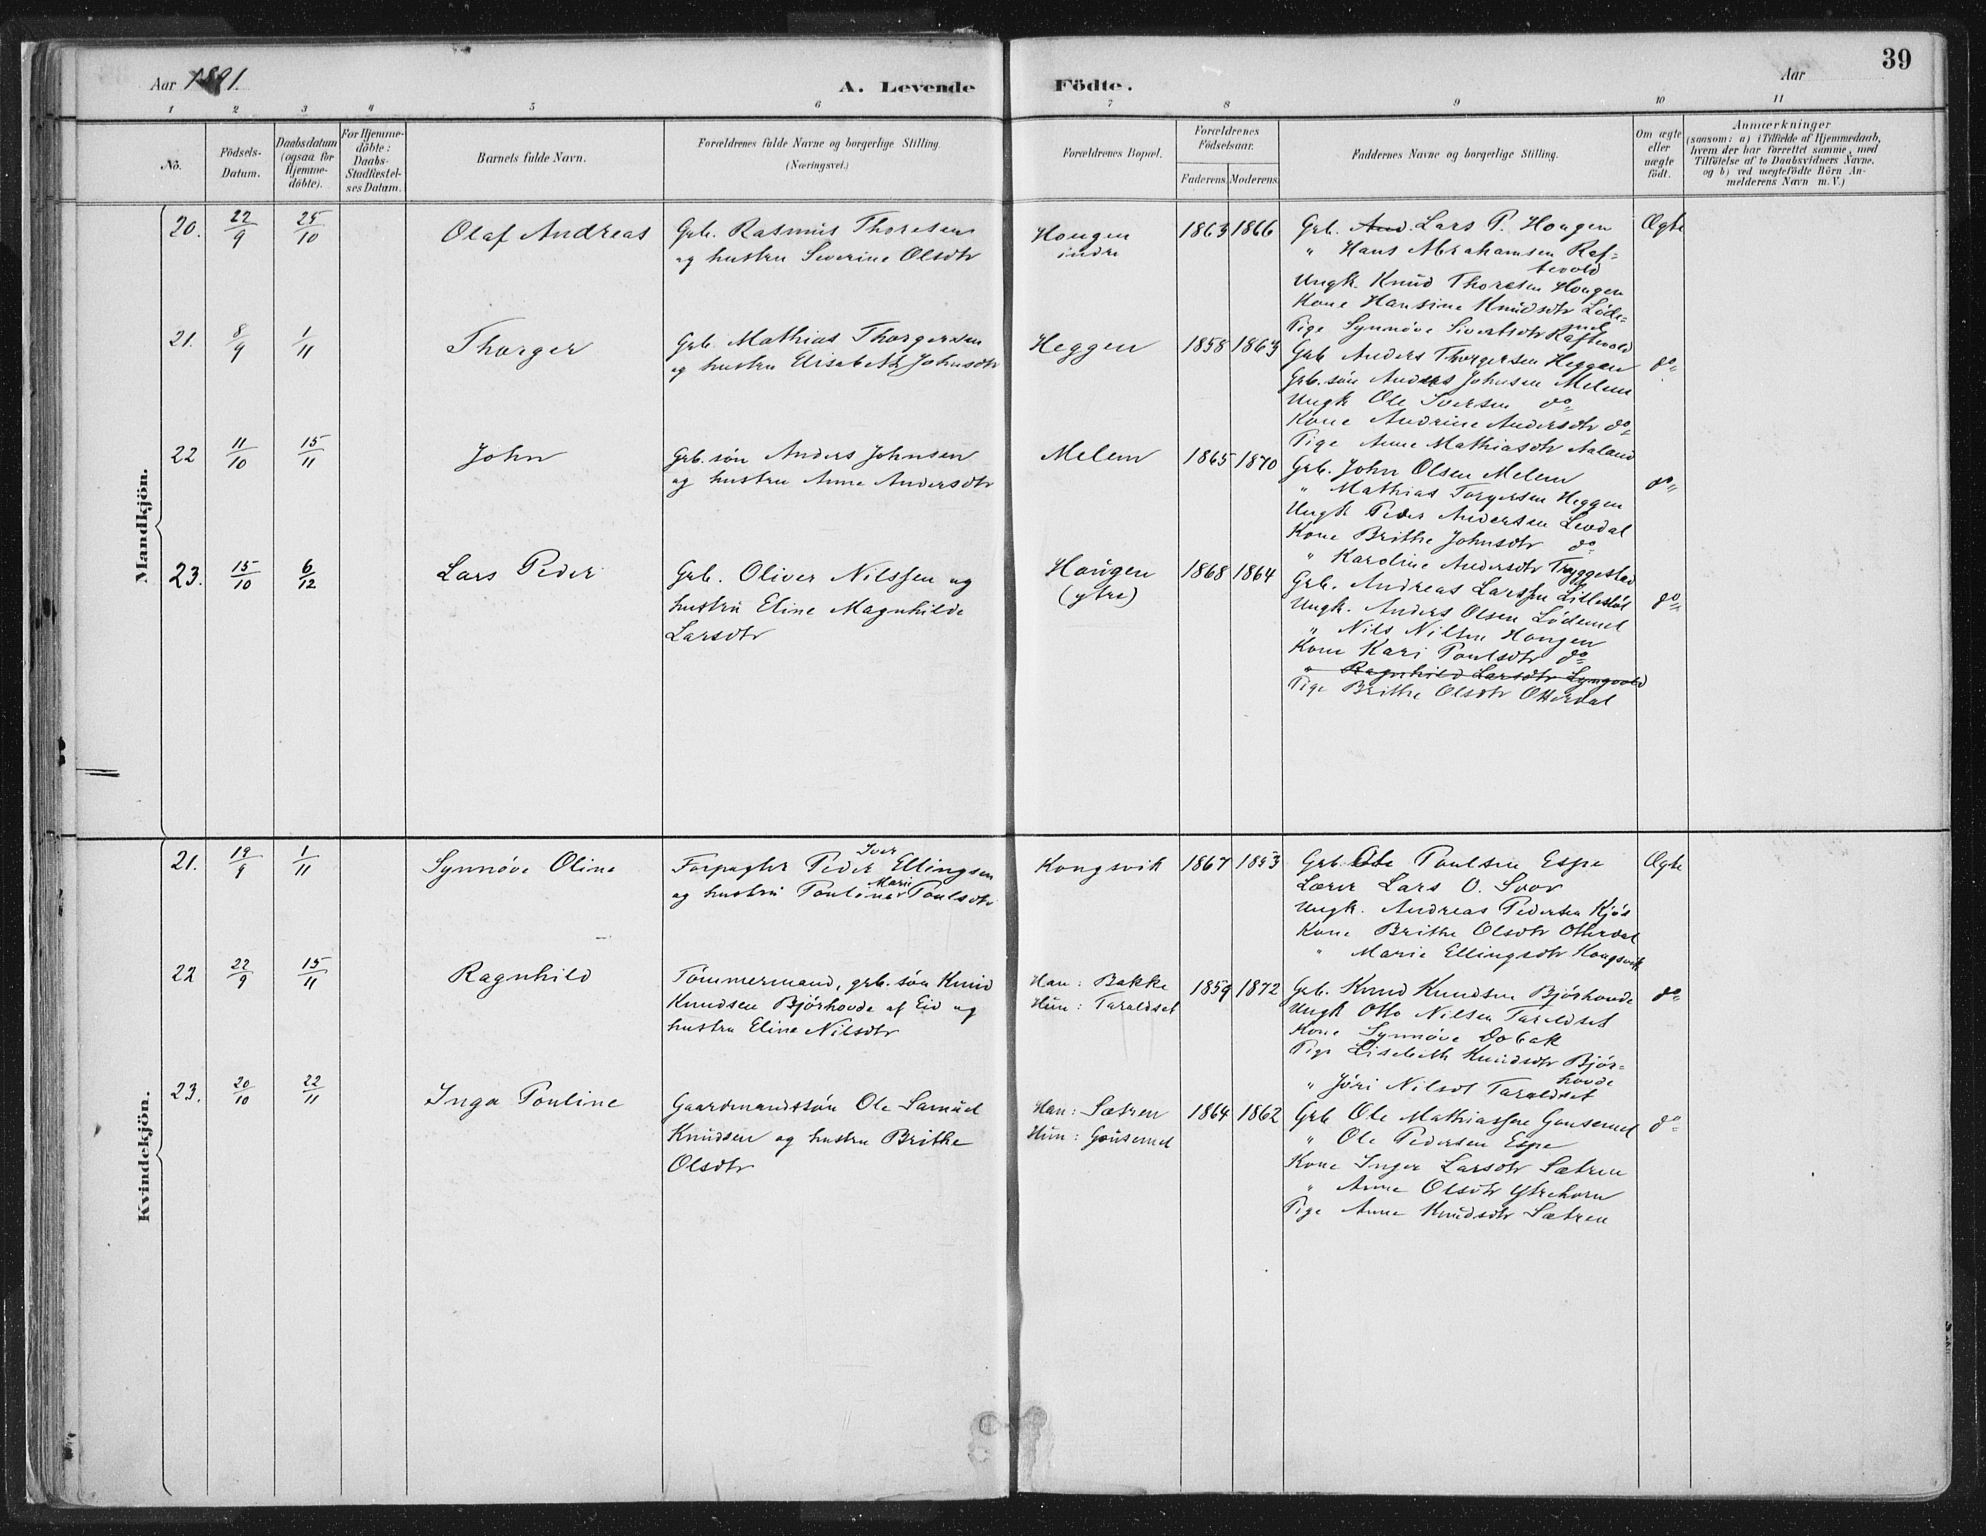 39
Aar 1891.
A. Levende
Födte.
Aar
1 2 3 4 5 6 7 8 9 10 11
No.
Födsels-
Datum.
Daabsdatum
(ogsaa for
Hjemme-
döbte).
For Hjemme-
döbte:
Daabs-
Stadfæstel-
ses Datum.
Barnets fulde Navn.
Forældrenes fulde Navne og borgerlige Stilling.
(Næringsvei.)
Forældrenes Bopæl.
Forældrenes
Födselsaar.
Faderens. Moderens.
Faddernes Navne og borgerlige Stilling.
Om ægte
eller
uægte
födt.
Anmærkninger
(saasom: a) i Tilfælde af Hjemmedaab,
hvem der har forrettet samme, med
Tilföielse af to Daabsvidners Navne,
og b) ved uægtefödte Börn An-
melderens Navn m. V.)
Mandkjön.
20. 22/9 25/10 Olaf Andreas
Grb. Rasmus Thoresen
og hustru Severine Olsdtr
Hougen
indre
1863 1866
Grb. And. Lars P. Hougen
" Hans Abrahamsen Raf-
tevold
Ungk. Knud Thoresen Hougen
Kone Hansine Knudsdtr Löde-
mel
Pige Synnöve Sivertsdtr Raftevold
Ægte
21. 8/9 1/11 Thorger
Grb. Mathias Thorgersen
og hustru Elisabeth Johnsdtr
Heggen
1858 1863
Grb Anders Thorgersen Heggen
Grb. sön Anders Johnsen Melem
Ungk Ole Iversen do
Kone Andrine Andersdtr do
Pige Anne Mathiasdtr Aaland
do
22 11/10 15/11 John
Grb. sön Anders Johnsen
og hustru Anne Andersdtr
Melem
1865 1870
Grb. John Olsen Melem
" Mathias Torgersen Heggen
Ungk Peder Andersen Levdal
Kone Brithe Johnsdtr do
" Karoline Andersdtr Tryggestad
do
23. 15/10 6/12 Lars Peder
Grb. Oliver Nilssen og
hustru Eline Magnhilde
Larsdtr
Hougen
(ytre)
1868 1864
Grb. Andreas Larssen Lillestöl
Ungk. Anders Olsen Lödemel
" Nils Nilsen Hougen
Kone Kari Poulsdtr do
" Ragnhild Larsdtr Lyngvold
Pige Brithe Olsdtr Otterdal
do
Kvindekjön.
21. 19/9 1/11 Synnöve Oline
Forpagter Peder Iver Ellingsen
og hustru Pouline Marie Poulsdtr
Kongsvik
1867 1853
Grb. Ole Poulsen Espe
Lærer Lars O. Svor
Ungk. Andreas Pedersen Kjös
Kone Brithe Olsdtr Otterdal
" Marie Ellingsdtr Kongsvik
Ægte
22 22/9 15/11 Ragnhild
Tömmermand, grb. sön Knud
Knudsen Bjórhovde af Eid og
hustru Eline Nilsdtr
Han: Bakke
Hun: Taraldset
1859 1872
Grb. Knud Knudsen Bjórhovde
Ungk Otto Nilsen Taraldset
Kone Synnöve Dobak
Pige Lisebeth Knudsdtr Bjór-
hovde
" Jóri Nilsdt Taraldset
do
23. 20/10 22/11 Inga Pouline
Gaardmandssön Ole Samuel
Knudsen og hustru Brithe
Olsdtr
Han: Sætren
Hun: Gausemel
1864 1862
Grb Ole Mathiassen Gausemel
" Ole Pedersen Espe
Kone Inger Larsdtr Sætren
" Anne Olsdtr Ytrehorn
Pige Anne Knudsdtr Sætren
do